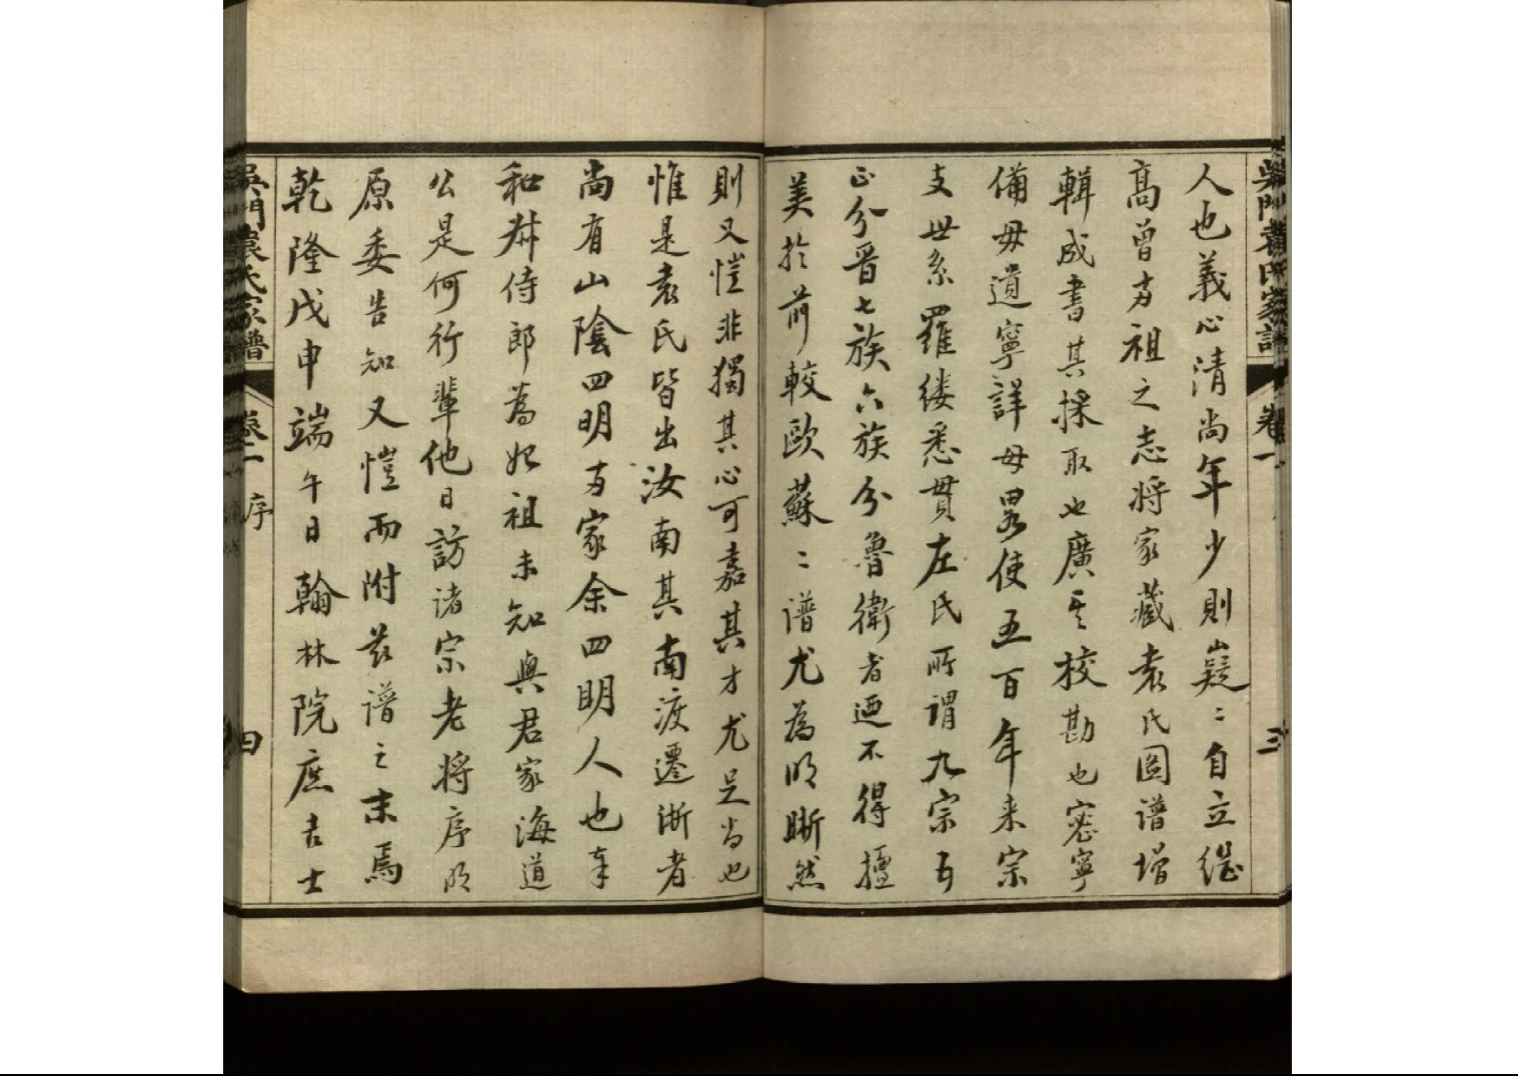 吳門袁氏家譜 卷一 三
人也義心清尚年少則嶷〻自立継
高曾方祖之志将家藏袁氏圖譜增
輯成書其採取也廣其校勘也密寧
備毋遺寧詳毋畧使五百年来宗
支世系羅缕悉貫左氏所謂九宗五
正分晋七族六族分魯衛者迺不得擅
美於前較歐蘇〻譜尤為明晰然
則又愷非獨其心可嘉其才尤足尚也
惟是袁氏皆出汝南其南渡遷浙者
尚有山陰四明方家余四明人也奉
和叔侍郎為始祖未知與君家海道
公是何行輩他日訪诸宗老将序明
原委告知又愷而附兹譜之末焉
乾隆戊申端午日翰林院庶吉士
吳門袁氏家譜 卷一 序 四